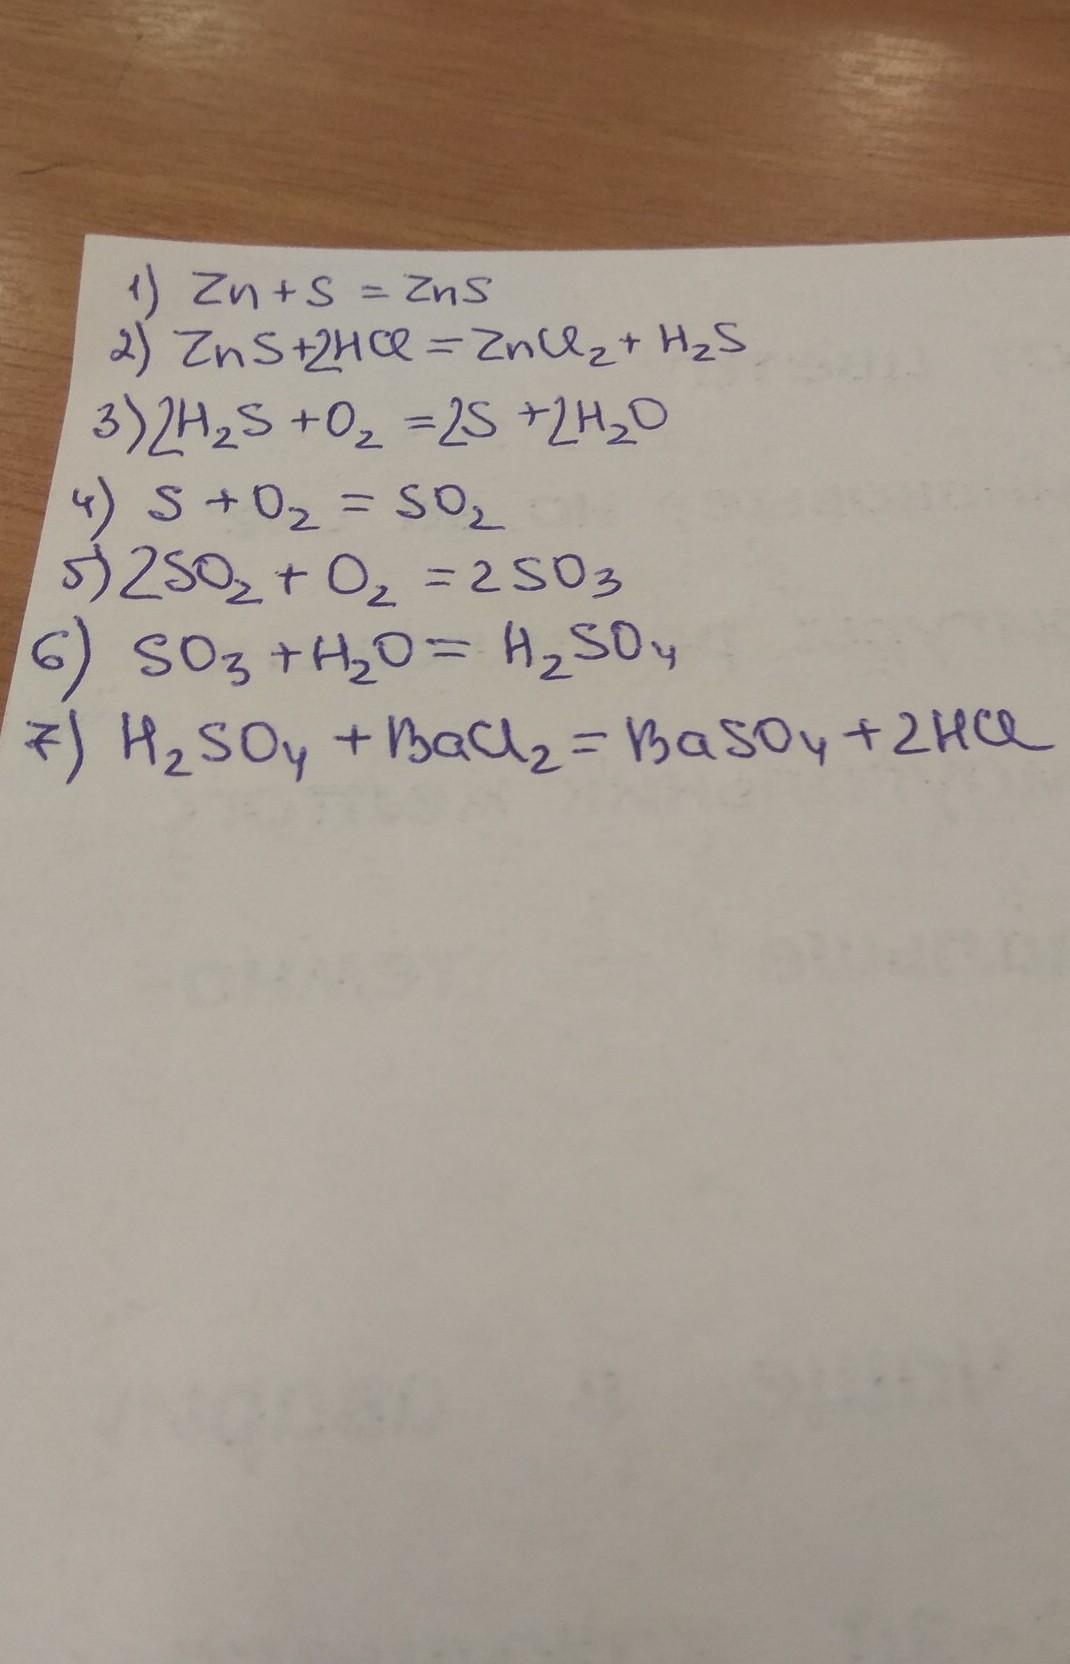 1) Zn + S = ZnS
2) ZnS + 2HCl = ZnCl₂ + H₂S
3) 2H₂S + O₂ = 2S + 2H₂O
4) S + O₂ = SO₂
5) 2SO₂ + O₂ = 2SO₃
6) SO₃ + H₂O = H₂SO₄
7) H₂SO₄ + BaCl₂ = BaSO₄ + 2HCl